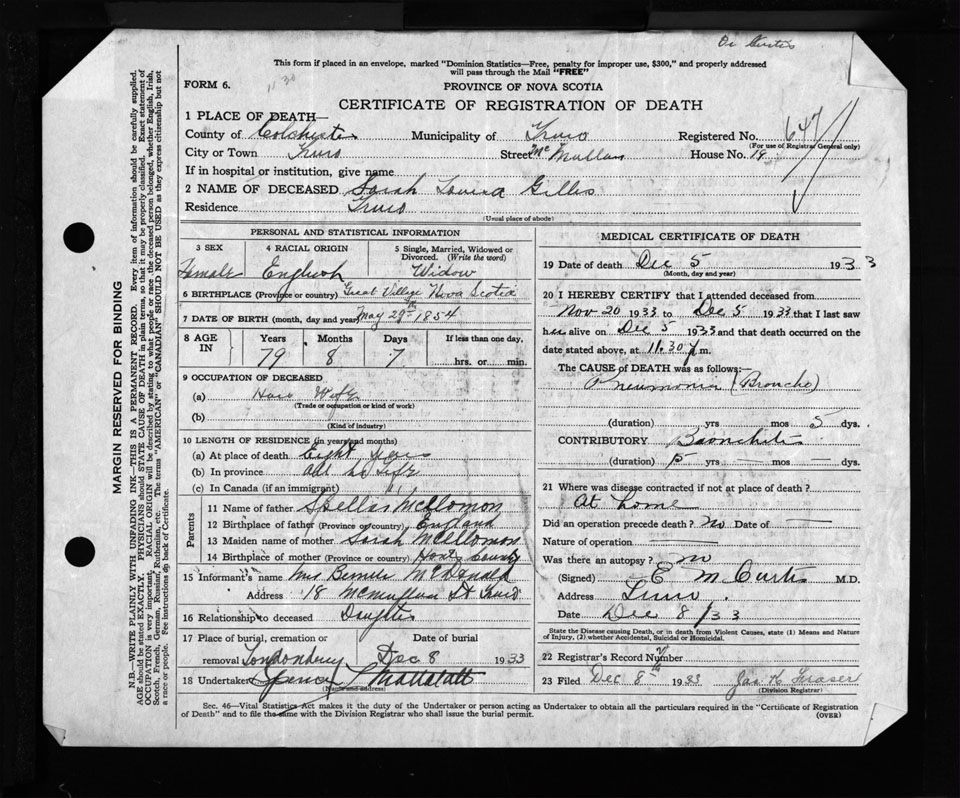 Dr Curtis
This form if placed in an envelope, marked "Dominion Statistics—Free, penalty for improper use, $300," and properly addressed
will pass through the Mail "FREE"
FORM 6.
11 30
PROVINCE OF NOVA SCOTIA
CERTIFICATE OF REGISTRATION OF DEATH
1 PLACE OF DEATH—
County of Colchester Municipality of Truro Registered No. 647
(For use of Registrar General only)
City or Town Truro Street McMullan House No. 19
If in hospital or institution, give name
2 NAME OF DECEASED Sarah Gillis
Residence Truro
(Usual place of abode)
PERSONAL AND STATISTICAL INFORMATION
3 SEX 4 RACIAL ORIGIN 5 Single, Married, Widowed or Divorced. (Write the word)
Female English Widow
6 BIRTHPLACE (Province or country) Great Village Nova Scotia
7 DATE OF BIRTH (month, day and year) May 29th 1854
8 AGE IN Years Months Days If less than one day,
79 8 7 hrs. or min.
9 OCCUPATION OF DECEASED
(a) House Wife
(Trade or occupation or kind of work)
(b)
(Kind of industry)
10 LENGTH OF RESIDENCE (in years and months)
(a) At place of death Eight years
(b) In province all her life
(c) In Canada (if an immigrant)
Parents
11 Name of father
12 Birthplace of father (Province or country) England
13 Maiden name of mother Sarah
14 Birthplace of mother (Province or country) Hants County
15 Informant's name Mrs McDonald
Address 18 McMullan St Truro
16 Relationship to deceased Daughter
17 Place of burial, cremation or Date of burial
removal Londonderry Dec 8 1933
18 Undertaker Spencer Mattatall
(Name and address)
MEDICAL CERTIFICATE OF DEATH
19 Date of death Dec 5 1933
(Month, day and year)
20 I HEREBY CERTIFY that I attended deceased from
Nov 20 1933 to Dec 5 1933 that I last saw
her alive on Dec 5 1933 and that death occurred on the
date stated above, at 11.30 m.
The CAUSE OF DEATH was as follows:—
Pneumonia (Broncho)
(duration) yrs mos 5 dys.
CONTRIBUTORY Bronchitis
(duration) 5 yrs — mos — dys.
21 Where was disease contracted if not at place of death?
At home
Did an operation precede death? no Date of —
Nature of operation —
Was there an autopsy? no
(Signed) E M Curtis M.D.
Address Truro
Date Dec 8/33
State the Disease causing Death, or in death from Violent Causes, state (1) Means and Nature
of Injury, (2) whether Accidental, Suicidal or Homicidal.
22 Registrar's Record Number
23 Filed Dec 8th 1933 Jas K Fraser
(Division Registrar)
Sec. 46—Vital Statistics Act makes it the duty of the Undertaker or person acting as Undertaker to obtain all the particulars required in the "Certificate of Registration
of Death" and to file the same with the Division Registrar who shall issue the burial permit.
(OVER)
MARGIN RESERVED FOR BINDING
N.B.—WRITE PLAINLY WITH UNFADING INK—THIS IS A PERMANENT RECORD. Every item of information should be carefully supplied.
AGE should be stated EXACTLY. PHYSICIANS should STATE CAUSE OF DEATH in plain terms, so that it may be properly classified. Exact statement of
OCCUPATION is very important. RACIAL ORIGIN will be described by stating to what people or race the deceased person belonged, whether English, Irish,
Scotch, French, German, Russian, Ruthenian, etc. The terms "AMERICAN" or "CANADIAN" SHOULD NOT BE USED as they express citizenship but not
a race or people. See instructions on back of Certificate.